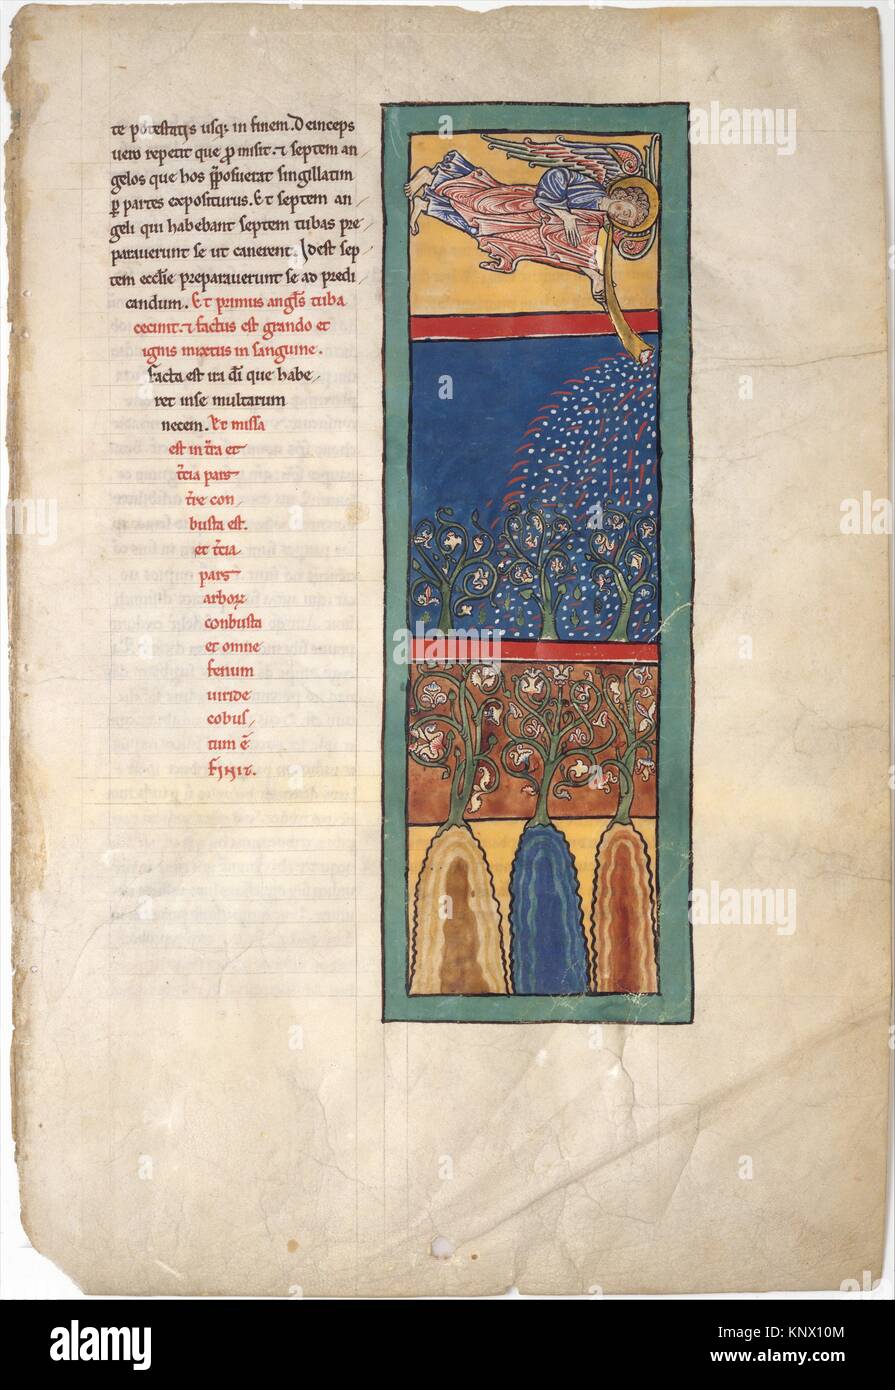 te potestatis usq; in finem. Deinceps
uero repetit que pmisit. & septem an
gelos que hos pposuerat singillatim
p partes expositurus. Et septem an
geli qui habebant septem tubas pre
parauerunt se ut canerent. Idest sep
tem ecclie preparauerunt se ad predi
candum. Et primus angls tuba
cecinit. & factus est grando et
ignis mixtus in sanguine.
Facta est ira di que habe
ret inse multarum
necem. Et missa
est in tra et
tcia pars
tre con
busta est.
et tcia
pars
arbor
conbusta
et omne
fenum
uiride
cobus
tum ē
finit.
alamy
Image ID: KNX10M
www.alamy.com